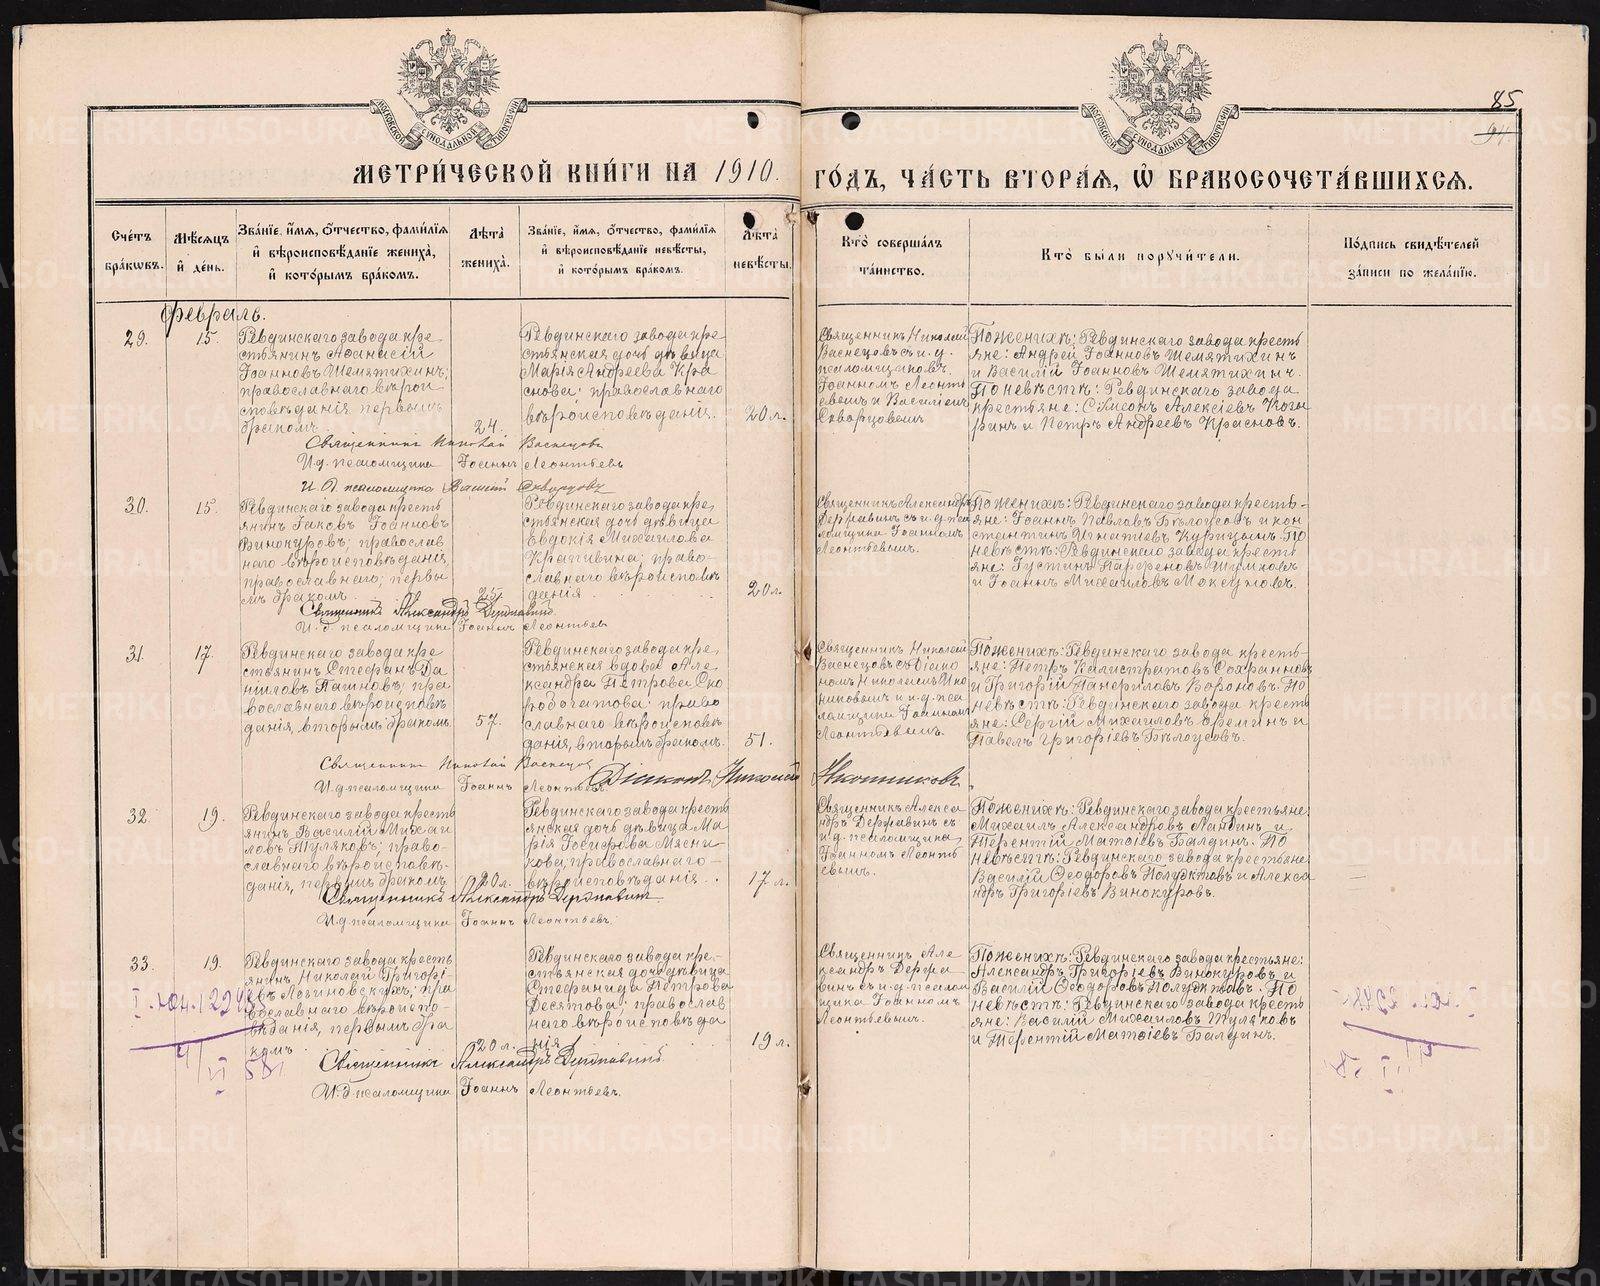 85
94.
МОСКОВСКОЙ СУНОДАЛЬНОЙ ТИПОГРАФІИ
МОСКОВСКОЙ СУНОДАЛЬНОЙ ТИПОГРАФІИ
МЕТРИ́ЧЕСКОЙ КНИ́ГИ НА 1910. ГО́ДЪ, ЧА́СТЬ ВТОРА́Я, Ѡ БРАКОСОЧЕТА́ВШИХСЯ.
Сче́тъ бра́кѡвъ.
Мѣ́сяцъ и҆ де́нь.
Зва́ніе, и҆́мя, ѻ҆́тчество, фами́лія и҆ вѣроисповѣ́даніе жениха̀, и҆ кото́рымъ бра́комъ.
Лѣ́та жениха̀.
Зва́ніе, и҆́мя, ѻ҆́тчество, фами́лія и҆ вѣроисповѣ́даніе невѣ́сты, и҆ кото́рымъ бра́комъ.
Лѣ́та невѣ́сты.
Кто̀ соверша́лъ та́инство.
Кто̀ бы́ли поручи́тели.
По́дпись свидѣ́телей за́писи по жела́нію.
Февраль.
29.
15.
Ревдинскаго завода кре
стьянинъ Аѳанасій
Іоанновъ Шемятихинъ;
православнаго вѣрои
сповѣданія первымъ
бракомъ.
24.
Ревдинскаго завода кре
стьянская дочь дѣвица
Марія Андреева Кра
снова; православнаго
вѣроисповѣданія.
20 л.
Священникъ Николай
Васнецовъ съ и. д.
псаломщиковъ
Іоанномъ Леонть
евымъ и Василіемъ
Скварцовымъ
По женихѣ: Ревдинскаго завода кресть
яне: Андрей Іоанновъ Шемятихинъ
и Василій Іоанновъ Шемятихинъ.
По невѣстѣ: Ревдинскаго завода
крестьяне: Сѵмеонъ Алексіевъ Козы
ринъ и Петръ Андреевъ Красновъ.
Священникъ Николай Васнецовъ
И. д. псаломщика Іоаннъ Леонтьевъ
И. д. псаломщика Василій Скварцовъ
30.
15.
Ревдинскаго завода кресть
янинъ Іаковъ Іоанновъ
Винокуровъ; православ
наго вѣроисповѣданія
православнаго; первы
мъ бракомъ.
25.
Ревдинскаго завода кре
стьянская дочь дѣвица
Евдокія Михаилова
Крапивина; право-
славнаго вѣроисповѣ
данія.
20 л.
Священникъ Александръ
Державинъ съ и. д. пса
ломщика Іоанномъ
Леонтьевымъ.
По женихѣ: Ревдинскаго завода кресть-
яне: Іоаннъ Павловъ Бѣлоусовъ и Кон
стантинъ Игнатіевъ Курицынъ. По
невѣстѣ: Ревдинскаго завода кресть
яне: Іустинъ Парѳеновъ
и Іоаннъ Михаиловъ Моксуновъ.
Священникъ Александръ Державинъ
И. д. псаломщика Іоаннъ Леонтьевъ
31.
17.
Ревдинскаго завода кре
стьянинъ Стефанъ Да
ниловъ Пашновъ; пра
вославнаго вѣроисповѣ
данія, вторымъ бракомъ.
57.
Ревдинскаго завода кре
стьянская вдова Але
ксандра Петрова Ско
робогатова; право
славнаго вѣроисповѣ
данія, вторымъ бракомъ.
51.
Священникъ Николай
Васнецовъ съ діако
номъ Николаемъ Ико
никовымъ и и. д. пса
ломщика Іоанномъ
Леонтьевымъ.
По женихѣ: Ревдинскаго завода кресть-
яне: Петръ Калистратовъ Сохранновъ
и Григорій Панфиловъ Вороновъ. По
невѣстѣ: Ревдинскаго завода кресть
яне: Сергій Михаиловъ Ереминъ и
Павелъ Григоріевъ Бѣлоусовъ.
Священникъ Николай Васнецовъ
Діаконъ Николай Иконниковъ.
И. д. псаломщика Іоаннъ Леонтьевъ
32.
19.
Ревдинскаго завода кресть
янинъ Василій Михаи
ловъ Туляковъ; право-
славнаго вѣроисповѣ-
данія, первымъ бракомъ.
20 л.
Ревдинскаго завода кресть
янская дочь дѣвица Ма
рія Іосифова Мясни
кова; православнаго
вѣроисповѣданія.
17 л.
Священникъ Алекса
ндръ Державинъ съ
и. д. псаломщика
Іоанномъ Леонть
евымъ.
По женихѣ: Ревдинскаго завода крестьяне
Михаилъ Александровъ Ландинъ и
Терентій Матѳіевъ Балдинъ. По
невѣстѣ: Ревдинскаго завода крестьяне
Василій Ѳеодоровъ Полуэктовъ и Алекса
ндръ Григоріевъ Винокуровъ.
Священникъ Александръ Державинъ
И. д. псаломщика Іоаннъ Леонтьевъ.
33.
19.
Ревдинскаго завода кресть
янинъ Николай Григорі-
евъ Логиновскихъ; пра
вославнаго вѣроиспо-
вѣданія, первымъ бра
комъ.
20 л.
Ревдинскаго завода кре-
стьянская дочь дѣвица
Стефанида Петрова
Десятова; православ
наго вѣроисповѣда
нія.
19 л.
Священникъ Але
ксандръ Держа
винъ съ и. д. псалом
щика Іоанномъ
Леонтьевымъ.
По женихѣ: Ревдинскаго завода крестьяне:
Александръ Григоріевъ Винокуровъ и
Василій Ѳеодоровъ Полуэктовъ. По
невѣстѣ: Ревдинскаго завода кресть
яне: Василій Михаиловъ Туляковъ
и Терентій Матѳіевъ Балдинъ.
Священникъ Александръ Державинъ
И. д. псаломщика Іоаннъ Леонтьевъ.
METRIKI.GASO-URAL.RU